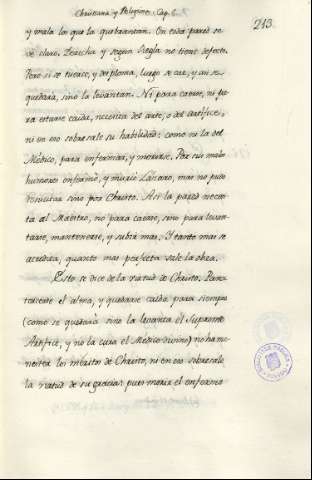 Christiana y Religiosa. Cap. 6.
213.
y mala los que la quebrantan. En esta pared se
ve claro. Derecha y segun Regla no tiene defecto.
Pero si se tuerce, y desploma, luego se cae, y assi se
quedará, sino la levantan. Ni para caerse, ni pa
ra estarse caida, necesita del arte, o del artifice,
ni en eso sobresale su habilidad: como ni la del
Médico, para enfermar, y morirse. Por sus malos
humores enfermó, y murió Lázaro, mas no pudo
resucitar sino por Christo. Asi la pared necesi
ta al Maestro, no para caerse, sino para levan
tarse, mantenerse, y subir mas. Y tanto mas se
acredita, quanto mas perfecta sale la obra.
Esto se dice de la virtud de Christo. Para
caerse el alma, y quedarse caida para siempre
(como se quedaria sino la levanta el Supremo
Artifice, y no la cura el Medico divino) no ha me
nester los meritos de Christo, ni en eso sobresale
la virtud de su gracia: pues moria el enfermo